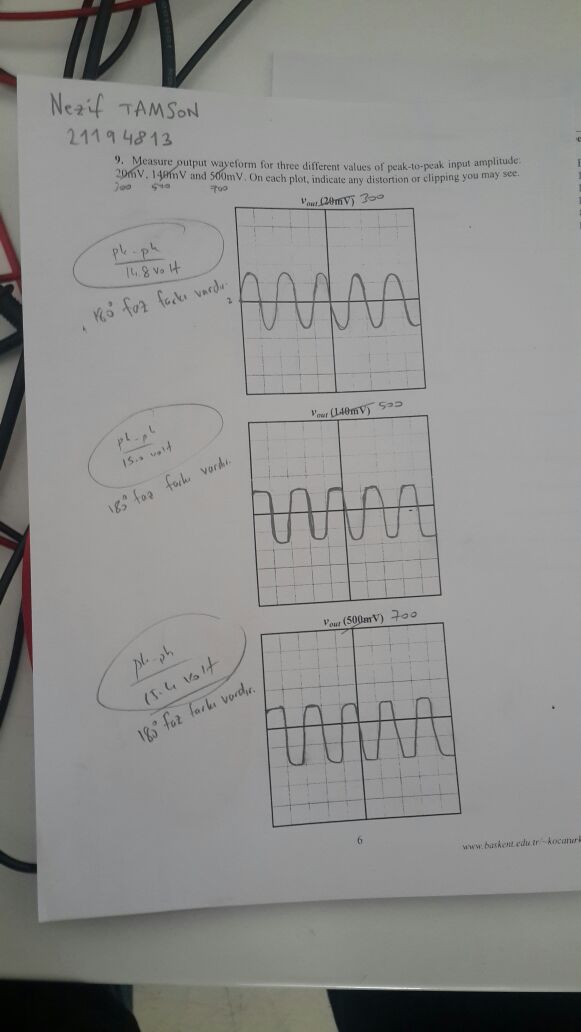 Nezif TAMSON
21194813
9. Measure output waveform for three different values of peak-to-peak input amplitude:
20mV, 140mV and 500mV. On each plot, indicate any distortion or clipping you may see.
300 500 700
vout (20mV) 300
pk-pk
14.8 volt
180° faz farkı vardır.
2
vout (140mV) 500
pk-pk
15.0 volt
180° faz farkı vardır.
vout (500mV) 700
pk-pk
15.4 volt
180° faz farkı vardır.
6
www.baskent.edu.tr/~kocaturk